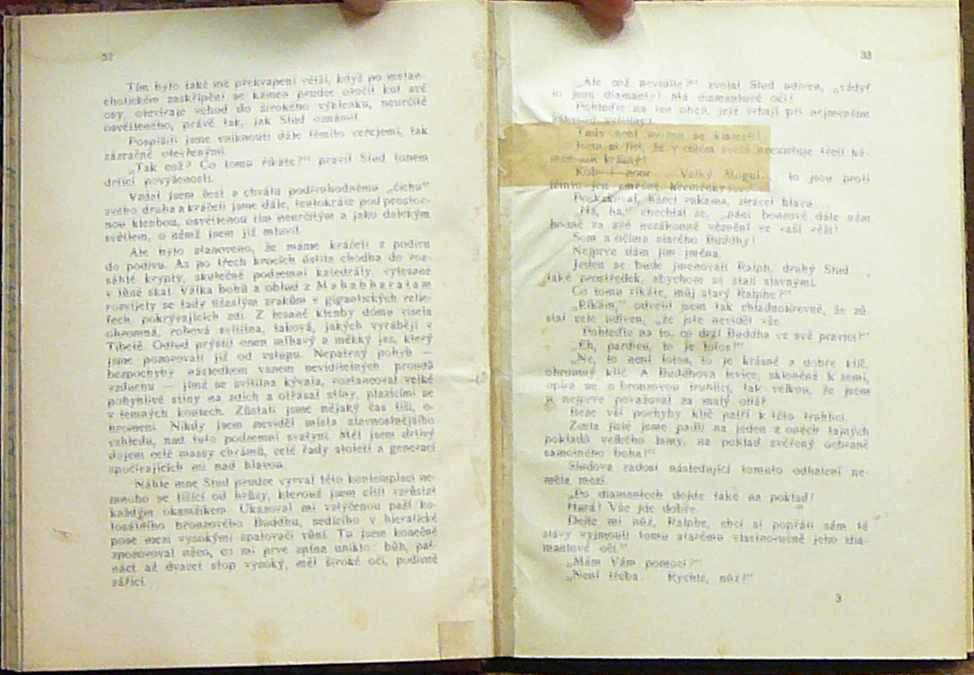 32
Tím bylo také mé překvapení větší, když po melan-
cholickém zaskřípění se kámen prudce otočil kol své
osy, otevíraje vchod do širokého výklenku, neurčitě
osvětleného, právě tak, jak Stud oznámil.
Pospíšili jsme vniknouti dále těmito veřejemi, tak
zázračně otevřenými.
„Tak což? Co tomu říkáte?“ pravil Stud tonem
drtící povýšenosti.
Vzdal jsem čest a chválu podivuhodnému „čichu“
svého druha a kráčeli jsme dále, tentokráte pod prostor-
nou klenbou, osvětlenou tím neurčitým a jako dalekým
světlem, o němž jsem již mluvil.
Ale bylo stanoveno, že máme kráčeti z podivu
do podivu. As po třech krocích ústila chodba do roz-
sáhlé krypty, skutečné podzemní katedrály, vytesané
v lůně skal. Válka bohů a oblud z Mahabharatam
rozvíjely se tady užaslým zrakům v gigantických relie-
fech, pokrývajících zdi. Z tesané klenby dómu visela
ohromná, rohová svítilna, taková, jakých vyrábějí v
Tibetě. Odtud prýštil onen mlhavý a měkký jas, který
jsme pozorovali již od vstupu. Nepatrný pohyb —
bezpochyby následkem vanem neviditelných proudů
vzduchu — jímž se svítilna kývala, roztancoval velké
pohyblivé stíny na zdích a otřásal stíny, plazícími se
v temných koutech. Zůstali jsme nějaký čas tiši, o-
hromeni. Nikdy jsem neviděl místa slavnostnějšího
vzhledu, nad tuto podzemní svatyni. Měl jsem drtivý
dojem celé massy chrámů, celé řady století a generací
spočívajících mi nad hlavou.
Náhle mne Stud prudce vyrval této kontemplaci ne-
mnoho se lišící od hrůzy, kterouž jsem cítil vzrůstat
každým okamžikem. Ukazoval mi vztyčenou paží ko-
losálního bronzového Buddhu, sedícího v hieratické
pose mezi vysokými spalovači vůní. Tu jsem konečně
zpozoroval něco, co mi prve zplna uniklo: bůh, pat-
náct až dvacet stop vysoký, měl široké oči, podivně
zářící.
33
„Ale což nevidíte?“ zvolal Stud udiven, „vždyť
to jsou diamanty! Má diamantové oči!
Pohleďte na ten oheň, jejž vrhají při nejmenším
není
Jsou si jist, že v celém světě neexistuje třetí ká-
men tak krásný!
Velký Mogul to jsou proti
těmto jen směšné, křeménky...
Poskakoval, házel rukama, ztrácel hlavu.
„Ha, ha,“ chechtal se, „páni bonzové dále nám
hodně za své nezákonné věznění ve vaší věži!
Sem s očima starého Buddhy!
Nejprve dám jim jména.
Jeden se bude jmenovati Ralph, druhý Stud
také prostředek, abychom se stali slavnými.
Co tomu říkáte, můj starý Ralphe?“
„Říkám,“ odvětil jsem tak chladnokrevně, že zů-
stal celý udiven, „že jste neviděl vše.
Pohleďte na to, co drží Buddha ve své pravici!“
„Eh, pardieu, to je lotos!“
„Ne, to není lotos, to je krásně a dobře klíč,
ohromný klíč. A Buddhova levice, skloněná k zemi,
opírá se o bronzovou truhlici, tak velkou, že jsem
ji nejprve považoval za malý oltář.
Beze vší pochyby klíč patří k této truhlici.
Zcela jistě jsme padli na jeden z oněch tajných
pokladů velkého lamy, na poklad svěřený ochraně
samotného boha!“
Studova radost následující tomuto odhalení ne-
měla mezí.
„Po diamantech dojde také na poklad!
Hurá! Vše jde dobře.
Dejte mi nůž, Ralphe, chci si popřáti sám té
slávy vyjmouti tomu starému vlastnoručně jeho dia-
mantové oči.“
„Mám Vám pomoci?“
„Není třeba. Rychle, nůž!“
3